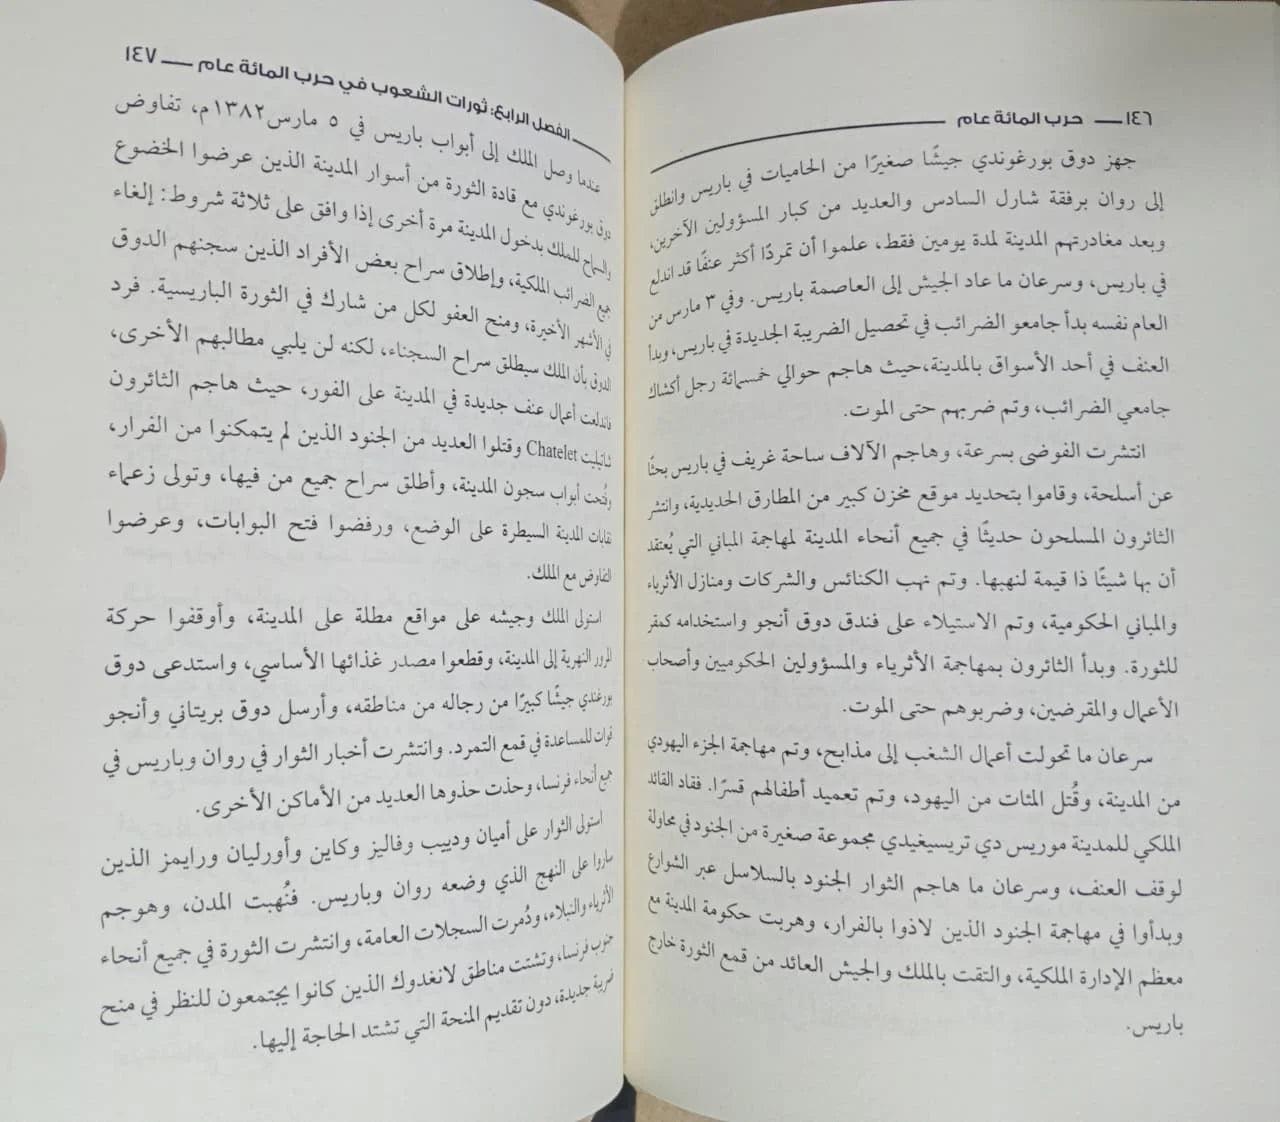 ١٤٦ — حرب المائة عام
جهز دوق بورغوندي جيشًا صغيرًا من الحاميات في باريس وانطلق
إلى روان برفقة شارل السادس والعديد من كبار المسؤولين الآخرين،
وبعد مغادرتهم المدينة لمدة يومين فقط، علموا أن تمردًا أكثر عنفًا قد اندلع
في باريس، وسرعان ما عاد الجيش إلى العاصمة باريس. وفي ٣ مارس من
العام نفسه بدأ جامعو الضرائب في تحصيل الضريبة الجديدة في باريس، وبدأ
العنف في أحد الأسواق بالمدينة،حيث هاجم حوالي خمسمائة رجل أكشاك
جامعي الضرائب، وتم ضربهم حتى الموت.
انتشرت الفوضى بسرعة، وهاجم الآلاف ساحة غريف في باريس بحثًا
عن أسلحة، وقاموا بتحديد موقع مخزن كبير من المطارق الحديدية، وانتشر
الثائرون المسلحون حديثًا في جميع أنحاء المدينة لمهاجمة المباني التي يُعتقد
أن بها شيئًا ذا قيمة لنهبها. وتم نهب الكنائس والشركات ومنازل الأثرياء
والمباني الحكومية، وتم الاستيلاء على فندق دوق أنجو واستخدامه كمقر
للثورة. وبدأ الثائرون بمهاجمة الأثرياء والمسؤولين الحكوميين وأصحاب
الأعمال والمقرضين، وضربوهم حتى الموت.
سرعان ما تحولت أعمال الشغب إلى مذابح، وتم مهاجمة الجزء اليهودي
من المدينة، وقُتل المئات من اليهود، وتم تعميد أطفالهم قسرًا. فقاد القائد
الملكي للمدينة موريس دي تريسيغيدي مجموعة صغيرة من الجنود في محاولة
لوقف العنف، وسرعان ما هاجم الثوار الجنود بالسلاسل عبر الشوارع
وبدأوا في مهاجمة الجنود الذين لاذوا بالفرار، وهربت حكومة المدينة مع
معظم الإدارة الملكية، والتقت بالملك والجيش العائد من قمع الثورة خارج
باريس.
الفصل الرابع: ثورات الشعوب في حرب المائة عام — ١٤٧
عندما وصل الملك إلى أبواب باريس في ٥ مارس١٣٨٢م، تفاوض
دوق بورغوندي مع قادة الثورة من أسوار المدينة الذين عرضوا الخضوع
والسماح للملك بدخول المدينة مرة أخرى إذا وافق على ثلاثة شروط: إلغاء
جميع الضرائب الملكية، وإطلاق سراح بعض الأفراد الذين سجنهم الدوق
في الأشهر الأخيرة، ومنح العفو لكل من شارك في الثورة الباريسية. فرد
الدوق بأن الملك سيطلق سراح السجناء، لكنه لن يلبي مطالبهم الأخرى،
فاندلعت أعمال عنف جديدة في المدينة على الفور، حيث هاجم الثائرون
شاتيليت Chatelet وقتلوا العديد من الجنود الذين لم يتمكنوا من الفرار،
وفُتحت أبواب سجون المدينة، وأطلق سراح جميع من فيها، وتولى زعماء
نقابات المدينة السيطرة على الوضع، ورفضوا فتح البوابات، وعرضوا
التفاوض مع الملك.
استولى الملك وجيشه على مواقع مطلة على المدينة، وأوقفوا حركة
المرور النهرية إلى المدينة، وقطعوا مصدر غذائها الأساسي، واستدعى دوق
بورغندي جيشًا كبيرًا من رجاله من مناطقه، وأرسل دوق بريتاني وأنجو
قوات للمساعدة في قمع التمرد. وانتشرت أخبار الثوار في روان وباريس في
جميع أنحاء فرنسا، وحذت حذوها العديد من الأماكن الأخرى.
استولى الثوار على أميان ودييب وفاليز وكاين وأورليان ورايمز الذين
ساروا على النهج الذي وضعه روان وباريس. فنُهبت المدن، وهوجم
الأثرياء والنبلاء، ودُمرت السجلات العامة، وانتشرت الثورة في جميع أنحاء
جنوب فرنسا، وتشتت مناطق لانغدوك الذين كانوا يجتمعون للنظر في منح
ضريبة جديدة، دون تقديم المنحة التي تشتد الحاجة إليها.